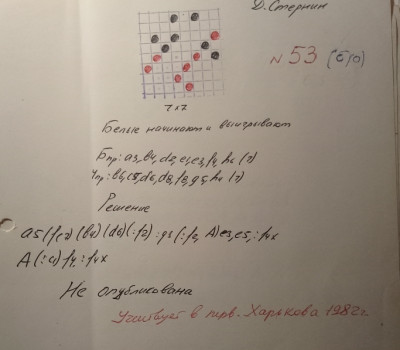 Д. Стернин
N 53 (б/о)
7 x 7
Белые начинают и выигрывают
Бпр: a3, b4, d2, e1, e3, f4, h6 (7)
Чпр: b6, c5, d6, d8, f8, g5, h6 (7)
Решение
a5 (f6) (b4) (d6) (:f2) :g5 (:f2, A) e3, e5, :f4x
A (:c1) f4, :f4x
Не опубликована
Участвует в перв. Харькова 1982 г.